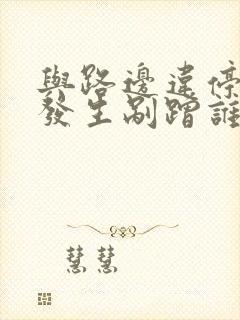 與路邊違停
發生剮蹭誰
慧慧